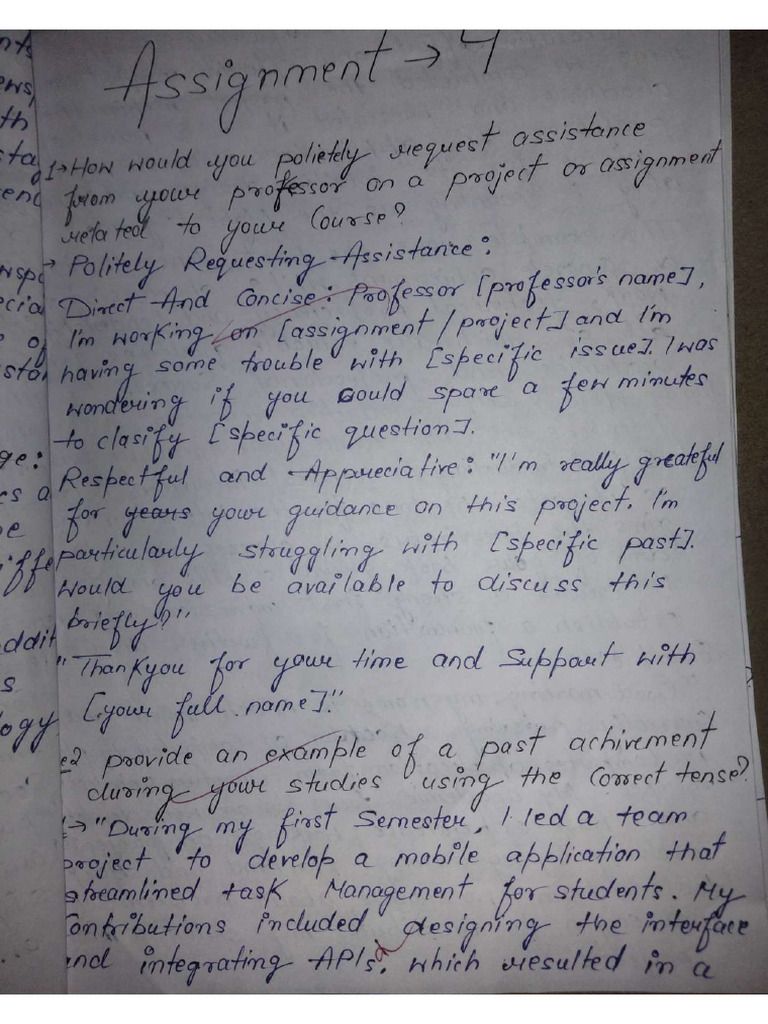 Assignment → 4
1→ How would you polietely request assistance
from your professor on a project or assignment
related to your Course?
→ Politely Requesting Assistance:
Direct And Concise: Professor [professor's name],
I'm working on [assignment/project] and I'm
having some trouble with [specific issue]. I was
wondering if you could spare a few minutes
to clasify [specific question].
Respectful and Appreciative: "I'm really greateful
for years your guidance on this project. I'm
particularly struggling with [specific past].
Would you be available to discuss this
briefly?"
"Thankyou for your time and Support with
[your full name]."
2 provide an example of a past achivement
during your studies using the Correct tense?
→ "During my first Semester, I led a team
project to develop a mobile application that
streamlined task Management for students. My
Contributions included designing the interface
and integrating APIs, which resulted in a